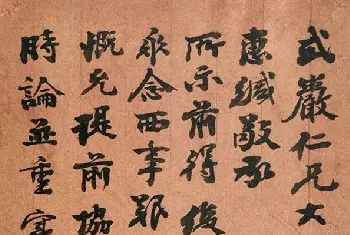 式巖仁兄大
惠緘敬承
所示前得後
永念西事艱
慨允提前協
時論並重室